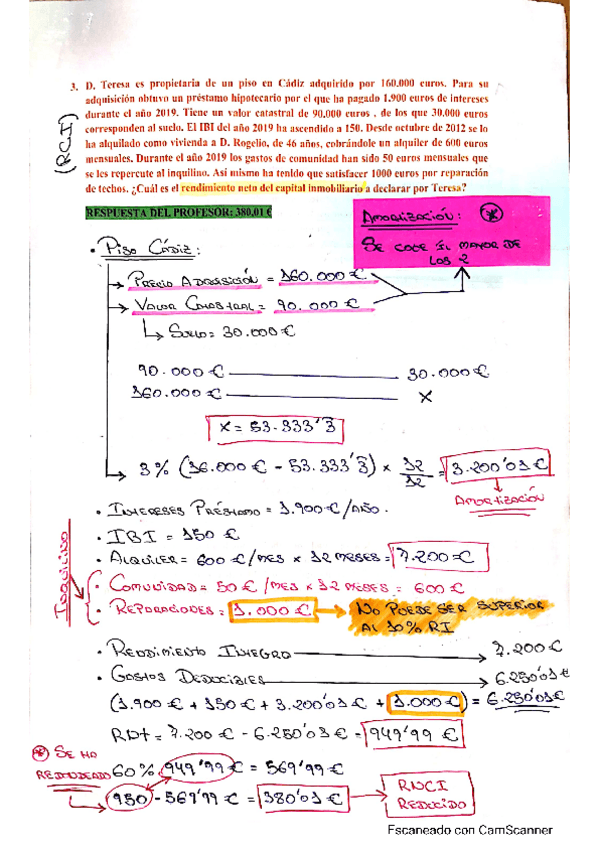 3. D. Teresa es propietaria de un piso en Cádiz adquirido por 160.000 euros. Para su
adquisición obtuvo un préstamo hipotecario por el que ha pagado 1.900 euros de intereses
durante el año 2019. Tiene un valor catastral de 90.000 euros , de los que 30.000 euros
corresponden al suelo. El IBI del año 2019 ha ascendido a 150. Desde octubre de 2012 se lo
ha alquilado como vivienda a D. Rogelio, de 46 años, cobrándole un alquiler de 600 euros
mensuales. Durante el año 2019 los gastos de comunidad han sido 50 euros mensuales que
se les repercute al inquilino. Así mismo ha tenido que satisfacer 1000 euros por reparación
de techos. ¿Cuál es el rendimiento neto del capital inmobiliario a declarar por Teresa?
(RCI)
RESPUESTA DEL PROFESOR: 380,01 €
AMORTIZACIÓN: *
SE COGE EL MAYOR DE
LOS 2
• PISO CÁDIZ:
→ PRECIO ADQUISICIÓN = 160.000 €
→ VALOR CATASTRAL = 90.000 €
↳ SUELO = 30.000 €
90.000 € 30.000 €
160.000 € X
X = 53.333'3
→ 3% (16.000 € - 53.333'3) × 12/12 = 3.200'01 €
AMORTIZACIÓN
• INTERESES PRÉSTAMO = 1.900 € /AÑO.
• IBI = 150 €
• ALQUILER = 600 € /MES × 12 MESES = 7.200 €
INQUILINO
• COMUNIDAD = 50 € /MES × 12 MESES = 600 €
• REPARACIONES = 1.000 € → NO PUEDE SER SUPERIOR
AL 10% RI
• RENDIMIENTO INTEGRO → 7.200 €
• GASTOS DEDUCIBLES → 6.250'01 €
(1.900 € + 150 € + 3.200'01 € + 1.000 €) = 6.250'01 €
RDT = 7.200 € - 6.250'01 € = 949'99 €
* SE HA
REDONDEADO
60% 949'99 € = 569'99 €
950 - 569'99 € = 380'01 € → RNCI
REDUCIDO
Escaneado con CamScanner